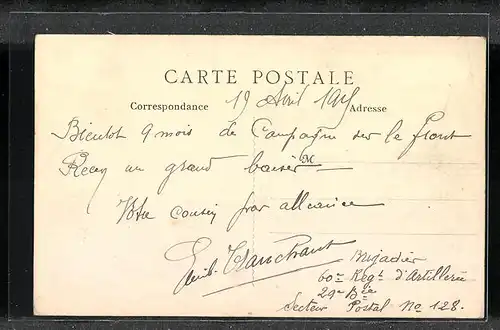 CARTE POSTALE
Correspondance 19 Avril 1915 Adresse
Bientot 9 mois de Campagne sur le front
Recey un grand baiser M
Votre cousin par alliance
Brigadier
60e Regt d'Artillerie
29e Bie
Secteur Postal No 128.